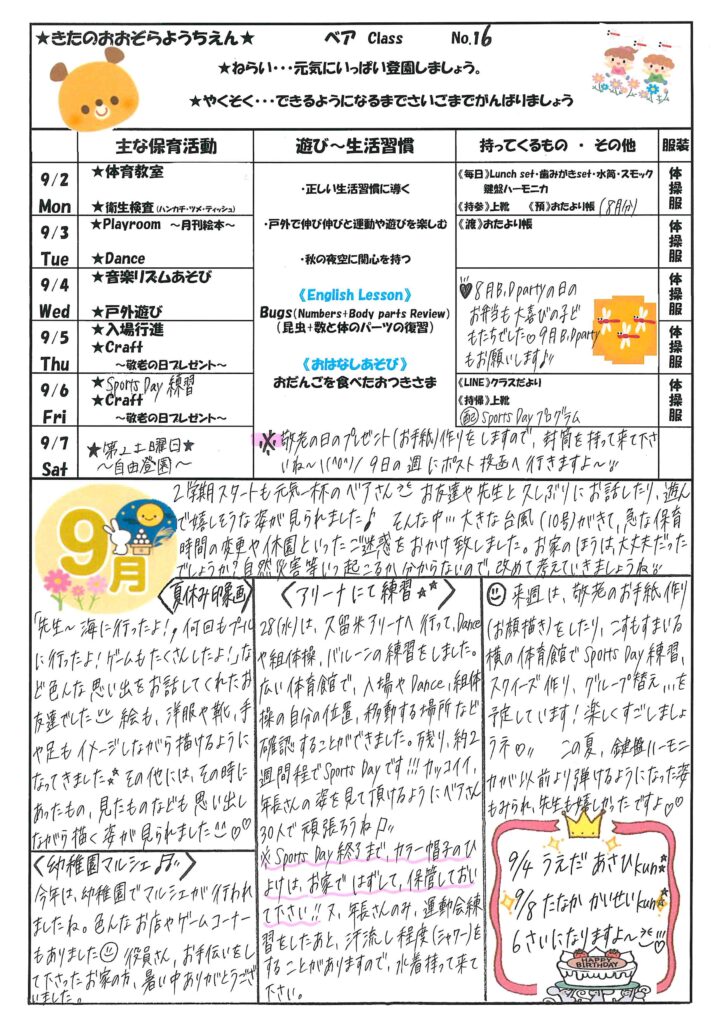 ★きたのおおぞらようちえん★ ベア Class No.16
★ねらい・・・元気にいっぱい登園しましょう。
★やくそく・・・できるようになるまでさいごまでがんばりましょう
主な保育活動 遊び～生活習慣 持ってくるもの ・ その他 服装
9/2 Mon
★体育教室
★衛生検査(ハンカチ・ツメ・ティッシュ)
・正しい生活習慣に導く
《毎日》Lunch set・歯みがきset・水筒・スモック
鍵盤ハーモニカ
《持参》上靴 《預》おたより帳(8月分)
体操服
9/3 Tue
★Playroom ～月刊絵本～
★Dance
・戸外で伸び伸びと運動や遊びを楽しむ
・秋の夜空に関心を持つ
《渡》おたより帳
体操服
9/4 Wed
★音楽リズムあそび
★戸外遊び
《English Lesson》
Bugs(Numbers+Body parts Review)
(昆虫+数と体のパーツの復習)
8月B.Dpartyの日の
お弁当も大喜びの子ど
もたちでした♡9月B.Dparty
もお願いします♪
体操服
9/5 Thu
★入場行進
★Craft
～敬老の日プレゼント～
《おはなしあそび》
おだんごを食べたおつきさま
体操服
9/6 Fri
★Sports Day 練習
★Craft
～敬老の日プレゼント～
《LINE》クラスだより
《持帰》上靴
(配)Sports Day プログラム
体操服
9/7 Sat
★第2土曜日★
～自由登園～
※敬老の日のプレゼント(お手紙)作りをしますので、封筒を持って来て下さ
いね～\(^o^)/ 9日の週にポスト投函へ行きますよ～
9月
2学期スタートも元気一杯のベアさん お友達や先生と久しぶりにお話したり、遊ん
で嬉しそうな姿が見られました♪ そんな中…大きな台風(10号)がきて、急な保育
時間の変更や休園といったご迷惑をおかけ致しました。お家のほうは、大丈夫だった
でしょうか?自然災害等いつ起こるか分からないので、改めて考えていきましょうね
〈夏休み印象画〉
「先生～海に行ったよ!、何回もプール
に行ったよ!ゲームもたくさんしたよ!」な
ど色んな思い出をお話してくれたお
友達でした 絵も、洋服や靴、手
や足もイメージしながら描けるように
なってきました☆その他には、その時に
あったもの、見たものなども思い出し
ながら描く姿が見られました♡♡
〈幼稚園マルシェ♪♪〉
今年は、幼稚園でマルシェが行われ
ましたね。色んなお店やゲームコーナー
もありました 役員さん、お手伝いをし
て下さったお家の方、暑い中ありがとうござ
いました。
〈アリーナにて練習☆☆〉
28(水)は、久留米アリーナへ行って、Dance
や組体操、バルーンの練習をしました。
広い体育館で、入場やDance、組体
操の自分の位置、移動する場所など
確認することができました。残り、約2
週間程でSports Dayです!!!カッコイイ、
年長さんの姿を見て頂けるようにベアさん
30人で頑張ろうね♪
※Sports Day 終了まで、カラー帽子のひ
よけは、お家ではずして、保管しておい
て下さい!!又、年長さんのみ、運動会練
習をしたあと、汗流し程度(シャワー)を
することがありますので、水着持って来て
下さい。
来週は、敬老のお手紙作り
(お顔描き)をしたり、こすもすまいる
横の体育館でSports Day練習、
スクイーズ作り、グループ替え…を
予定しています!楽しくすごしましょ
うネ♡ この夏、鍵盤ハーモニ
カが以前より弾けるようになった姿
もみられ、先生も嬉しかったですよ♡♡
9/4 うえだ あさひkun☆
9/8 たなか かいせいkun☆
6さいになりますよ～!!!
HAPPY
BIRTHDAY